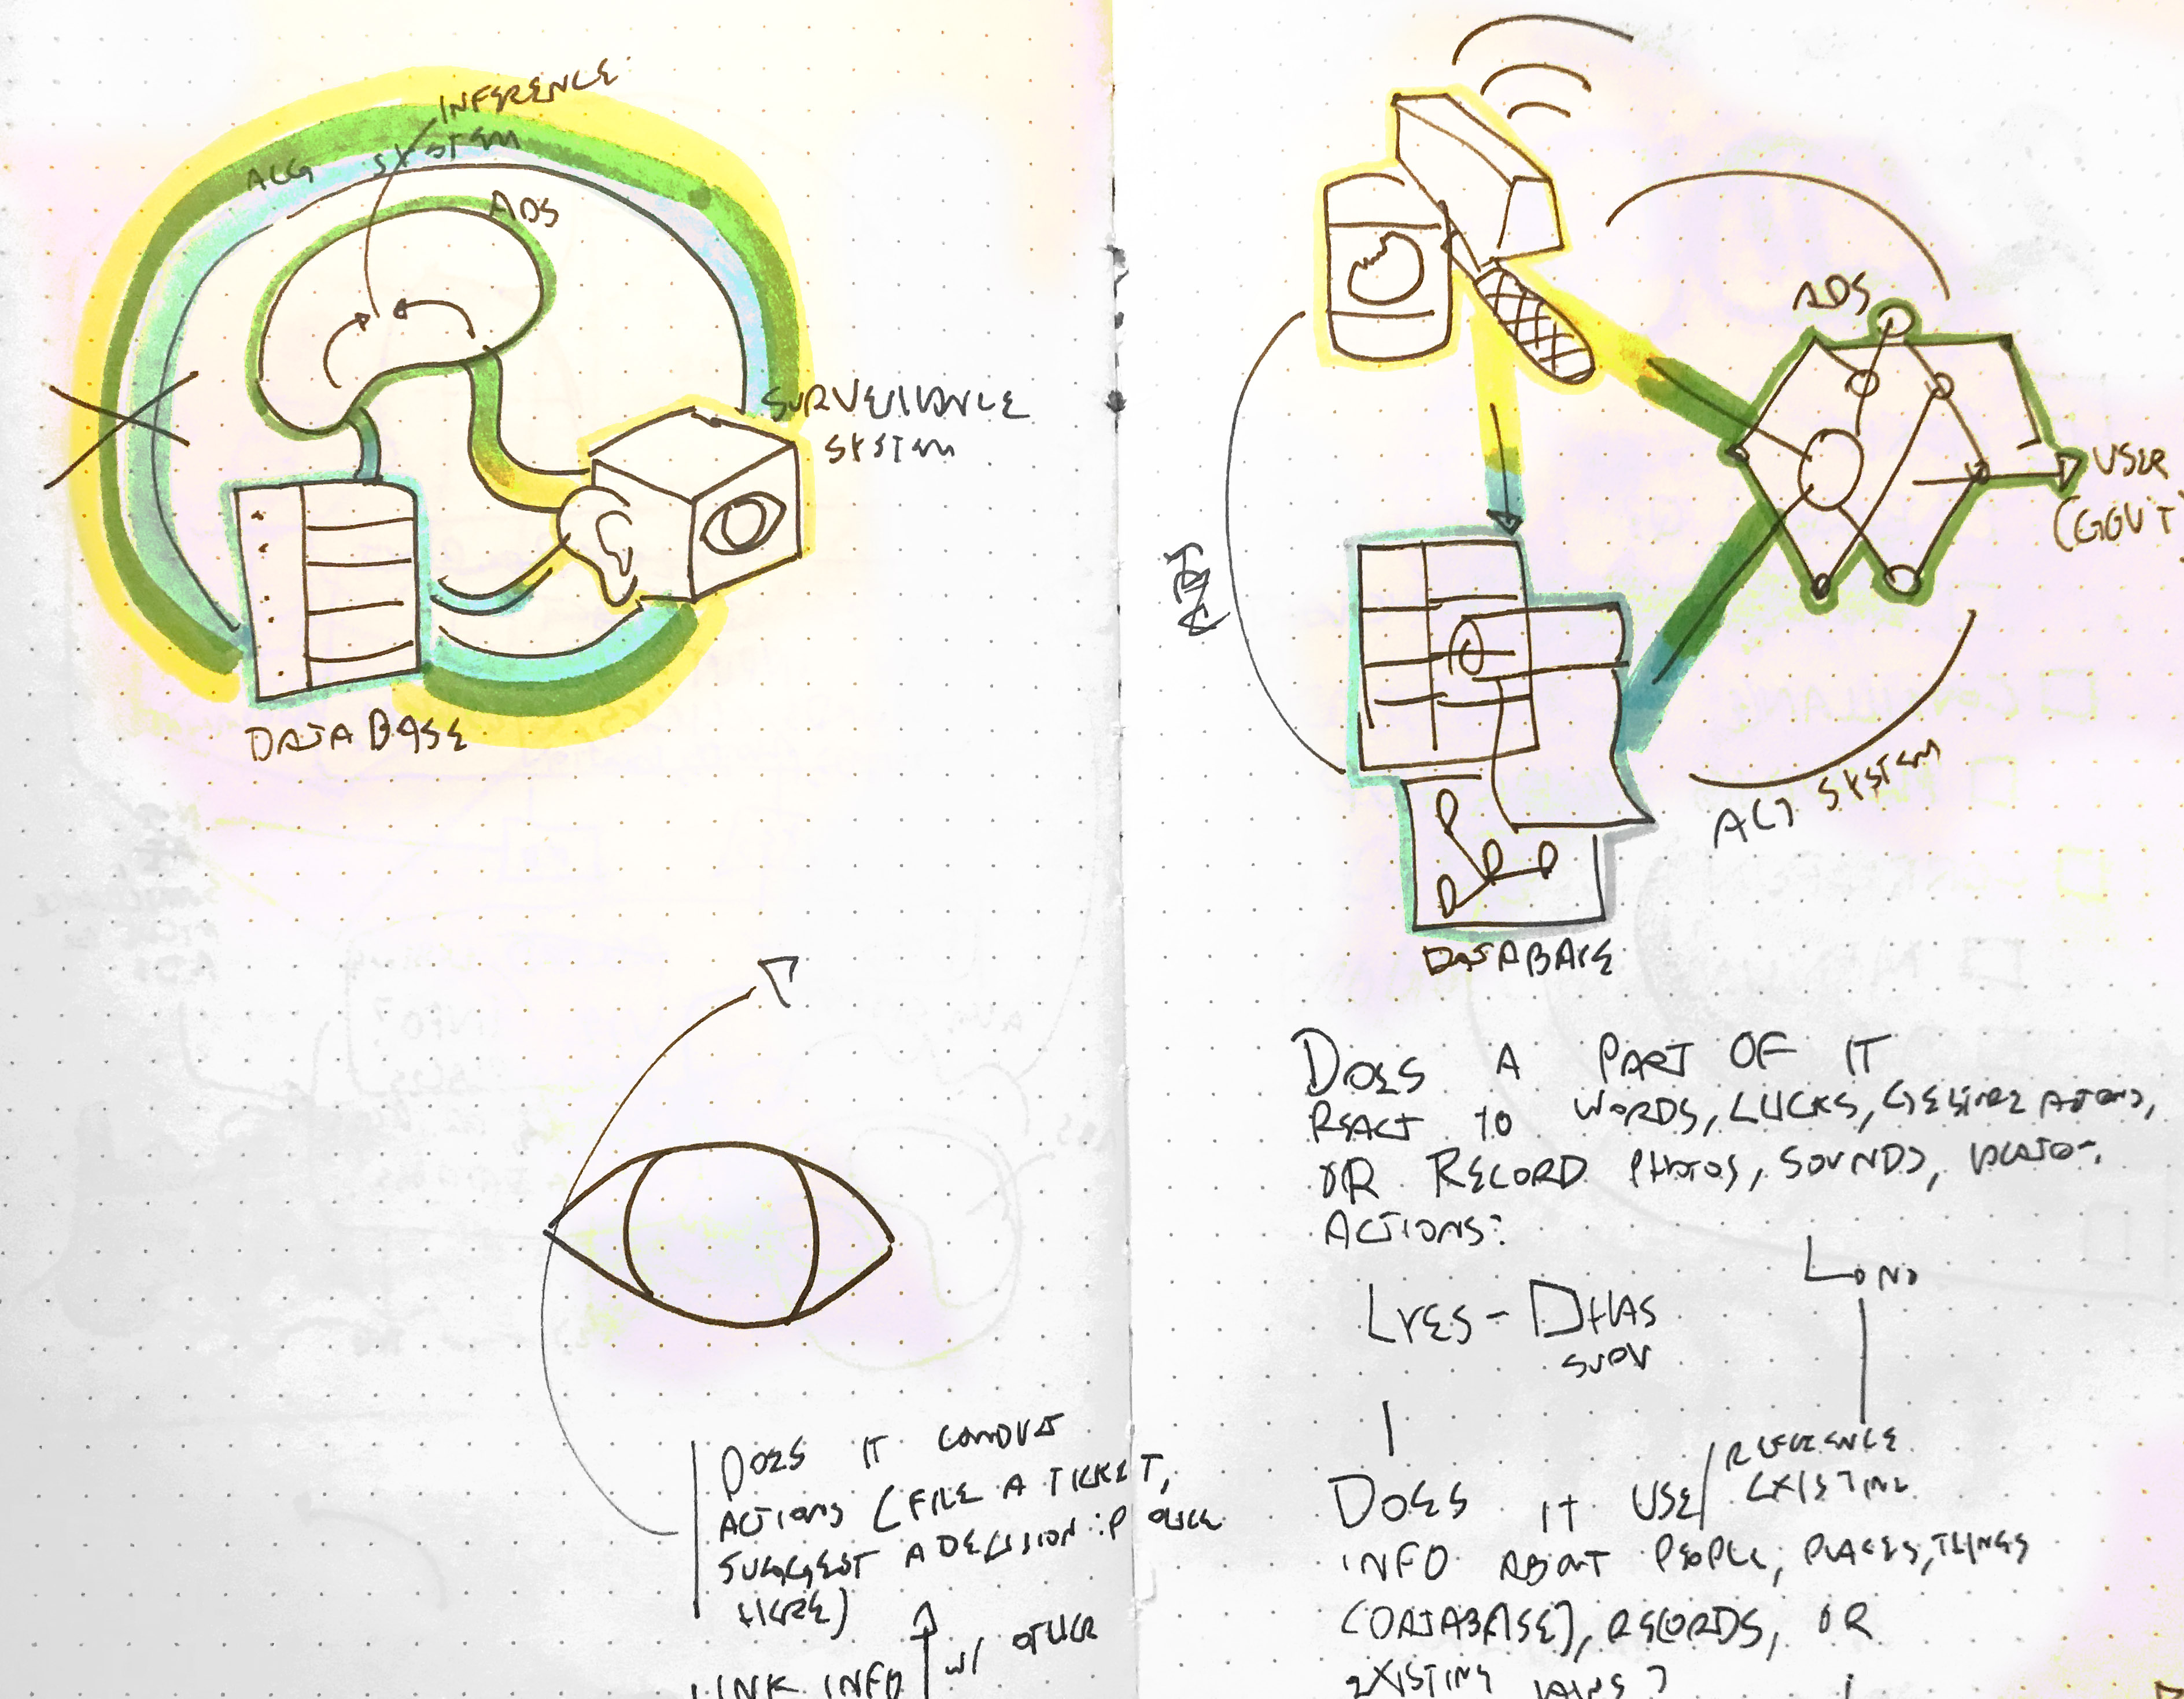 INFERENCE
ALG SYSTEM
ADS
SURVEILLANCE
SYSTEM
DATABASE
DOES IT
ACTIONS (FILE A TICKET,
SUGGEST A DECISION: POLICE
HERE)
LINK INFO
w/ OTHER
ADS
USER
(GOVT
ALG SYSTEM
DATABASE
DOES A PART OF IT
REACT TO WORDS,
OR RECORD PHOTOS, SOUNDS,
ACTIONS?
YES -
NO
DOES IT USE/REFERENCE
EXISTING
INFO ABOUT PEOPLE, PLACES, THINGS
(DATABASE), RECORDS, OR
EXISTING